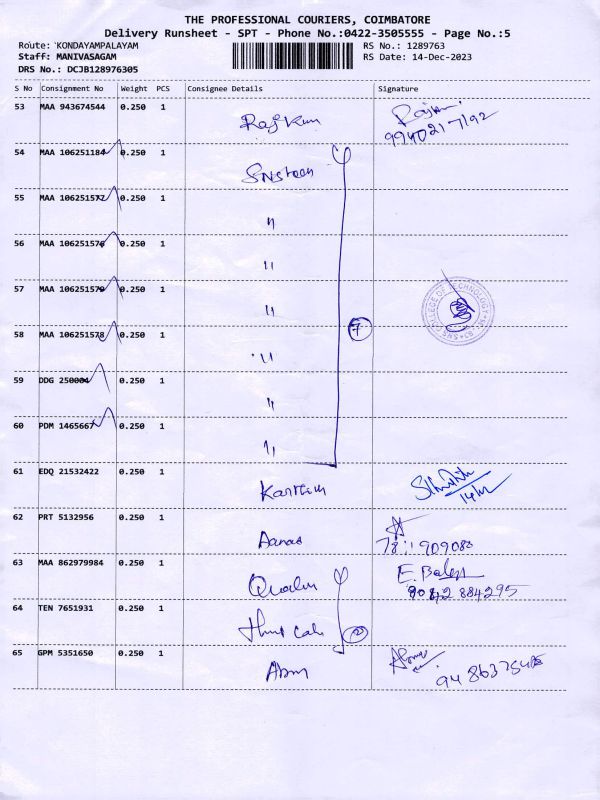 THE PROFESSIONAL COURIERS, COIMBATORE
Delivery Runsheet - SPT - Phone No.:0422-3505555 - Page No.:5
Route: KONDAYAMPALAYAM RS No.: 1289763
Staff: MANIVASAGAM RS Date: 14-Dec-2023
DRS No.: DCJB128976305
S No Consignment No Weight PCS Consignee Details Signature
53 MAA 943674544 0.250 1 Rajkum
9940217192
54 MAA 106251184 0.250 1
55 MAA 106251572 0.250 1 "
56 MAA 106251576 0.250 1 "
57 MAA 106251579 0.250 1 "
7
58 MAA 106251578 0.250 1 "
59 DDG 250004 0.250 1 "
60 PDM 1465667 0.250 1 "
61 EDQ 21532422 0.250 1 Karthick
62 PRT 5132956 0.250 1 Aanad
63 MAA 862979984 0.250 1 E. Balaji
9042884295
64 TEN 7651931 0.250 1
2
65 GPM 5351650 0.250 1